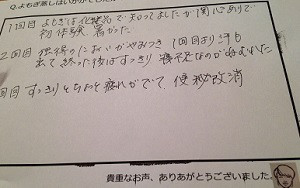 Q.よもぎ蒸しはいかがでしたか
1回目 よもぎは化粧品で知ってましたが関心ありで
初体験 高かった
2回目 独得のにおいがやみつき 1回目より汗も
出て 終った後はすっきり 寝不足なのがねむれた
回目 すっきりともあと疲れがでて、便秘改消
貴重なお声、ありがとうございました。